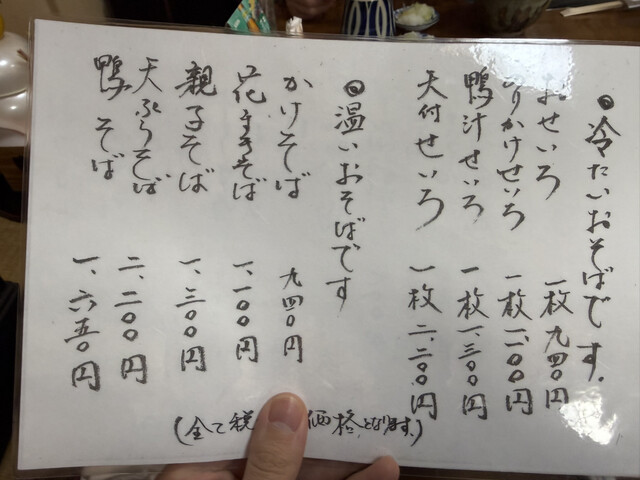 冷たいおそばです.
おせいろ 一枚 九四〇円
りかけせいろ 一枚 一、一〇〇円
鴨汁せいろ 一枚 一、三〇〇円
天付せいろ 一枚 二、二〇〇円
温いおそばです
かけそば 九四〇円
花まきそば 一、一〇〇円
親子そば 一、三〇〇円
天ぷらそば 二、二〇〇円
鴨そば 一、六五〇円
(全て税 価格となります.)